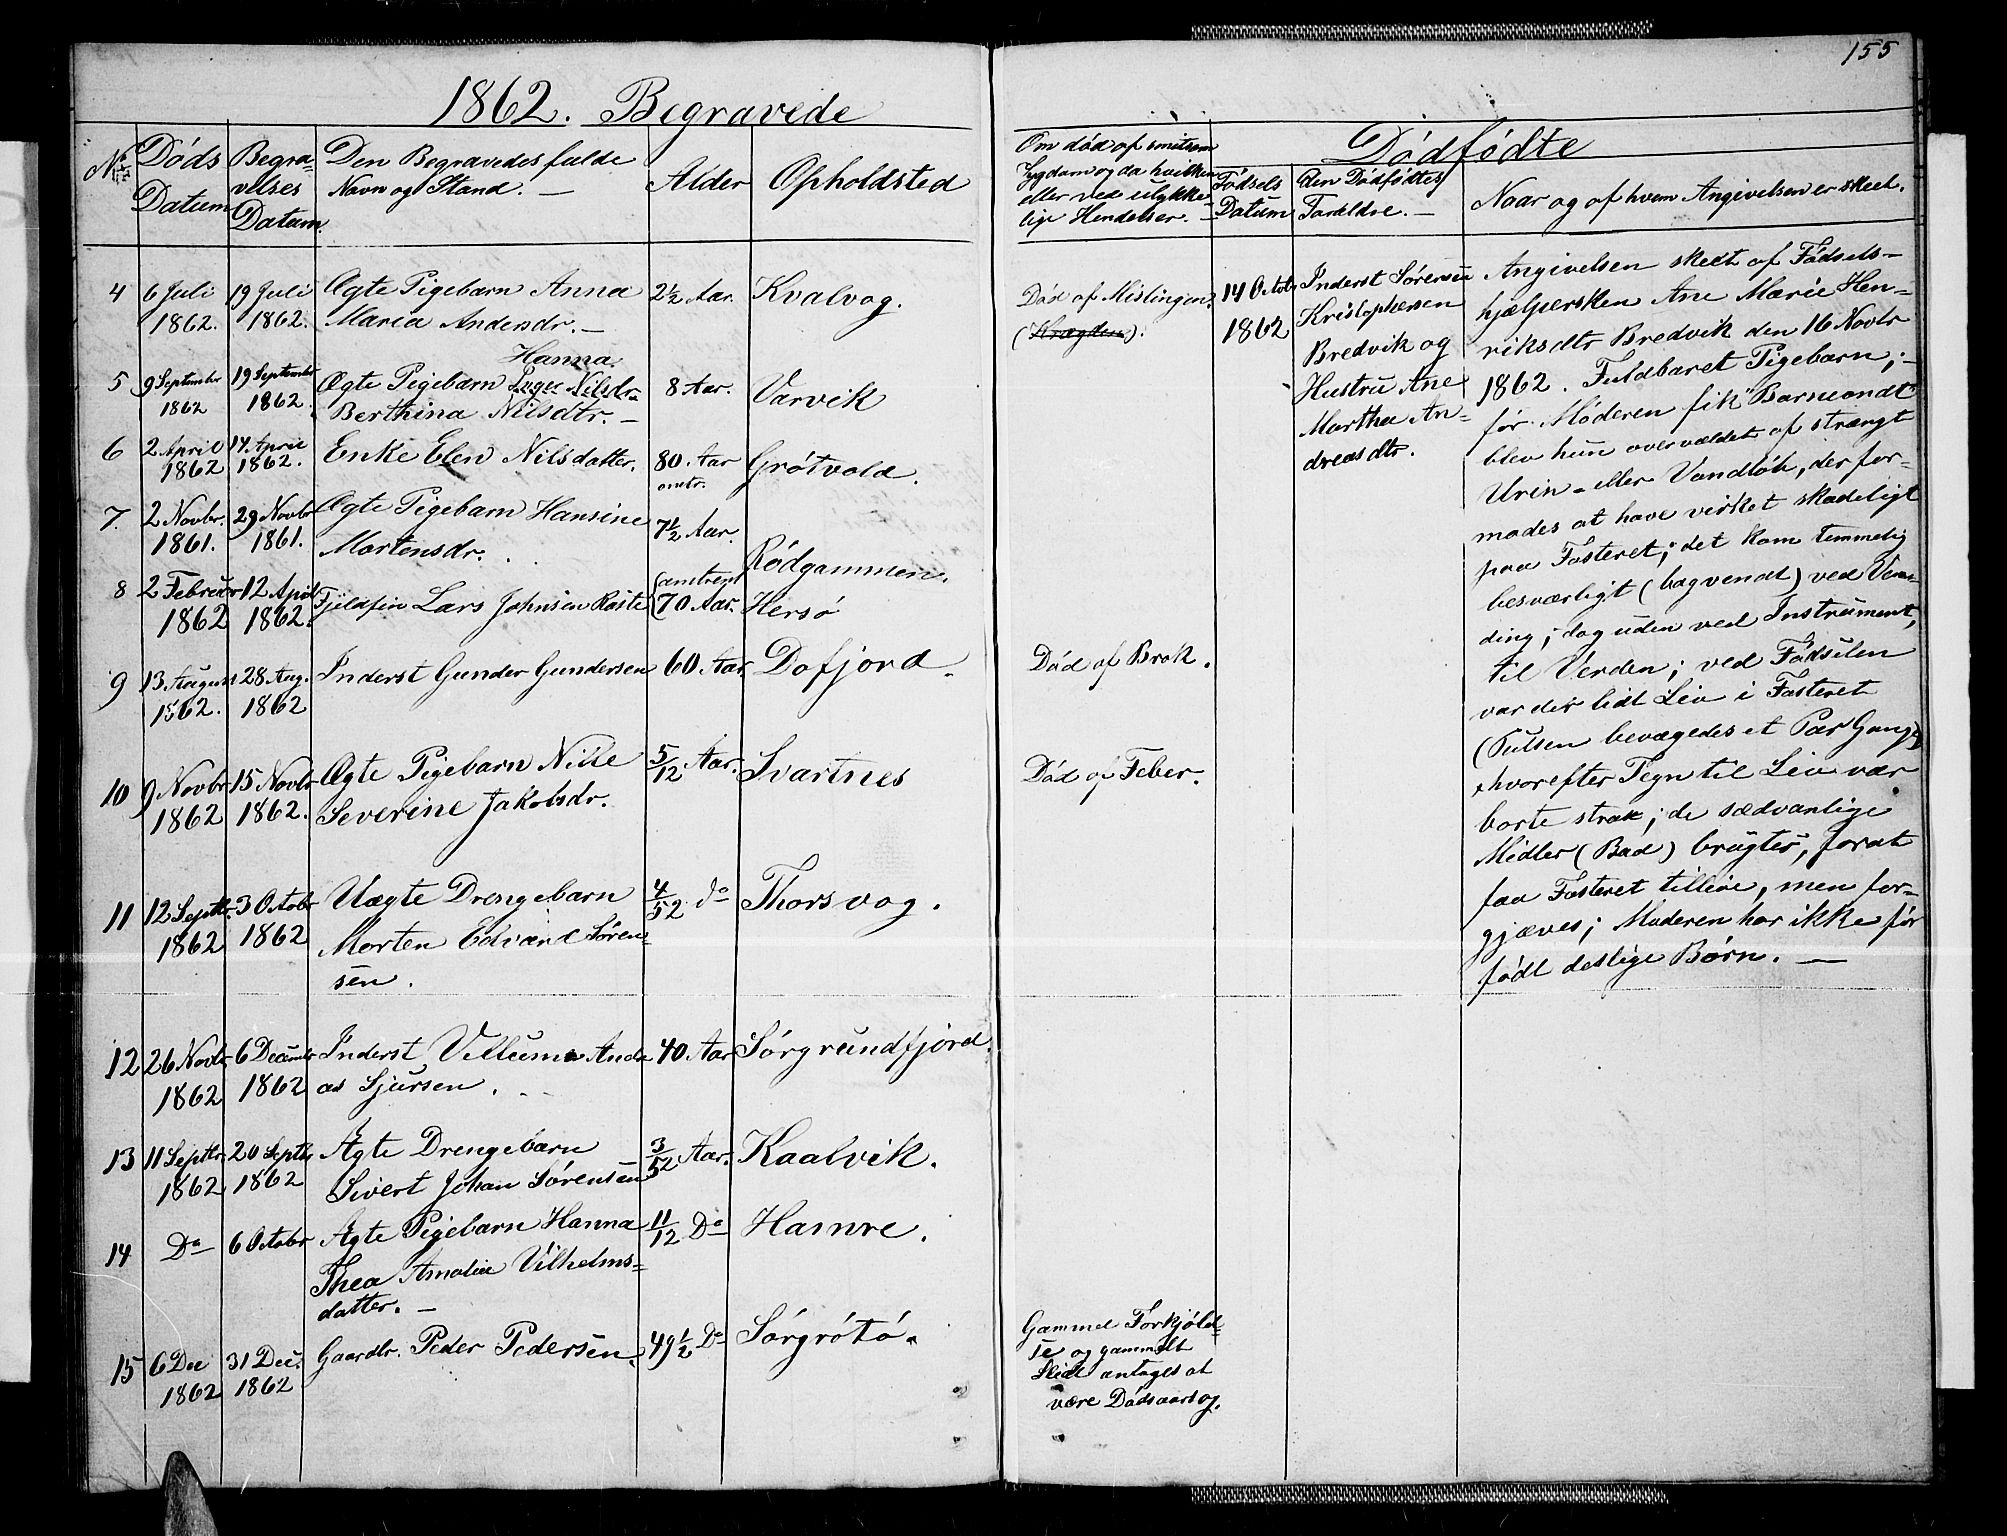 155
1862. Begravede
No
Døds
Datum
Begra-
velses
Datum
Den Begravedes fulde
Navn og Stand. —
Alder
Opholdsted
Om død af smitsom
Sygdom og da hvilken
eller ved ulykke-
lige Hendelser. —
Dødfødte
Fødsels
Datum
den Dødfødtes
Foreldre. —
Naar og af hvem Angivelsen er skeet.
4 6 Juli 19 Juli Ægte Pigebarn Anna 2½ Aar. Kvalvog. Død af Mislinger
1862. 1862. Maria Andersdr. —
Hanna
5 9 September 19 September Ægte Pigebarn Inger Nilsdr 8 Aar. Varvik
1862 1862. Berthina Nilsdtr. —
6 2 April 14 April Enke Elen Nilsdatter. 80 Aar Grøtvold.
1862 1862. omtr.
7. 2 Novbr. 29 Novbr Ægte Pigebarn Hansine 7½ Aar.
1861. 1861. Mortensdr. Rødgammen.
8 2 Februar 12 April Fjeldfin Lars Johnsen Raste (omtrent
1862 1862. 70 Aar. Hersø
9 13 August 28 Aug. Inderst Gunder Gundersen 60 Aar Dofjord. Død af Brok.
1862. 1862
10 9 Novbr 15 Novbr Ægte Pigebarn Nille 5/12 Aar. Svartnes Død af Feber.
1862 1862. Severine Jakobsdr.
11 12 Septbr 3 Octobr Uægte Drengebarn 4/52 do Thorsvog.
1862 1862 Morten Edvard Søren-
sen.
12 26 Novbr 6 December Inderst Villum Andre 40 Aar Sørgrundfjord.
1862 1862 as Sjursen.
13 11 Septbr 20 Septbr Ægte Drengebarn 3/52 Aar. Kaalvik.
1862 1862 Sivert Johan Sørensen
14 Do 6 Octobr Ægte Pigebarn Hanna 11/12 Do Hamre.
Thea Amalie Vilhelms-
datter. —
15 6 Dec 31 Dec. Gaardbr. Peder Pedersen. 49½ Do Sørgrøtø.
1862 1862
Gammel Forkjøld-
se og gammelt
Slid antages at
være Dødsaarsag.
14 Octobr
1862
Inderst Sørensen
Kristophersen
Bredvik og
Hustru Ane
Martha An-
dreasdtr.
Angivelsen skedt af Fødsels-
hjælpersken Ane Marie Hen-
riksdtr Bredvik den 16 Novbr
1862. Fuldbaret Pigebarn; —
før Moderen fik "Barneondt"
blev hun overvældet af strængt
Urin- eller Vandløb, der for-
modes at have virket skadeligt
paa Fosteret; det kom temmelig
besværligt (bagvendt) ved Ven-
ding; dog uden ved Instrument,
til Verden; ved Fødselen
var der lidt Liv i Fosteret
(Pulsen bevægedes et Par Gange)
hvorefter Tegn til Liv var
borte strax; de sædvanlige
Midler (Bad) brugtes, forat
faa Fosteret tillive, men for-
gjæves; Moderen har ikke før
født deslige Børn. —